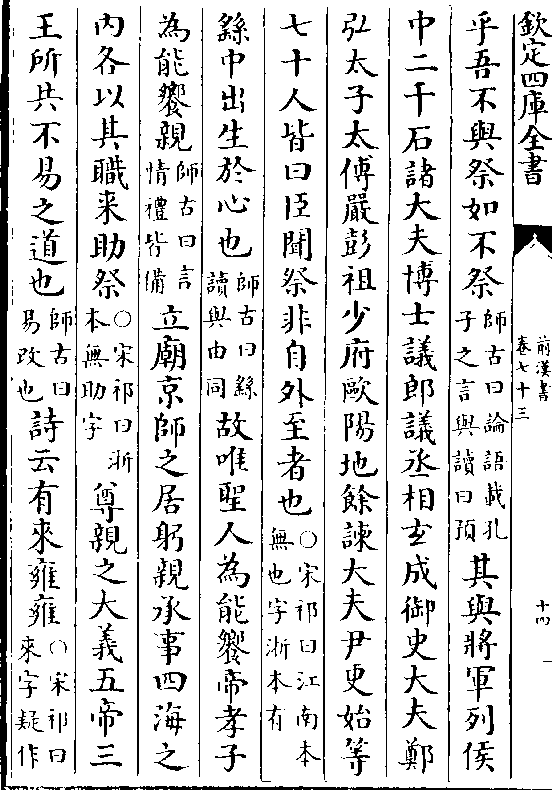 欽定四庫全書
前漢書
卷七十三
十四
乎吾不與祭如不祭師古曰論語載孔子之言與讀曰預其與將軍列侯
中二千石諸大夫博士議郎議丞相玄成御史大夫鄭
弘太子太傅嚴彭祖少府歐陽地餘諫大夫尹更始等
七十人皆曰臣聞祭非自外至者也○宋祁曰江南本無也字浙本有
繇中出生於心也師古曰繇讀與由同故唯聖人為能饗帝孝子
為能饗親師古曰言情禮皆備立廟京師之居躬親承事四海之
內各以其職来助祭○宋祁曰浙本無助字尊親之大義五帝三
王所共不易之道也師古曰易改也詩云有來雍雍○宋祁曰來字疑作